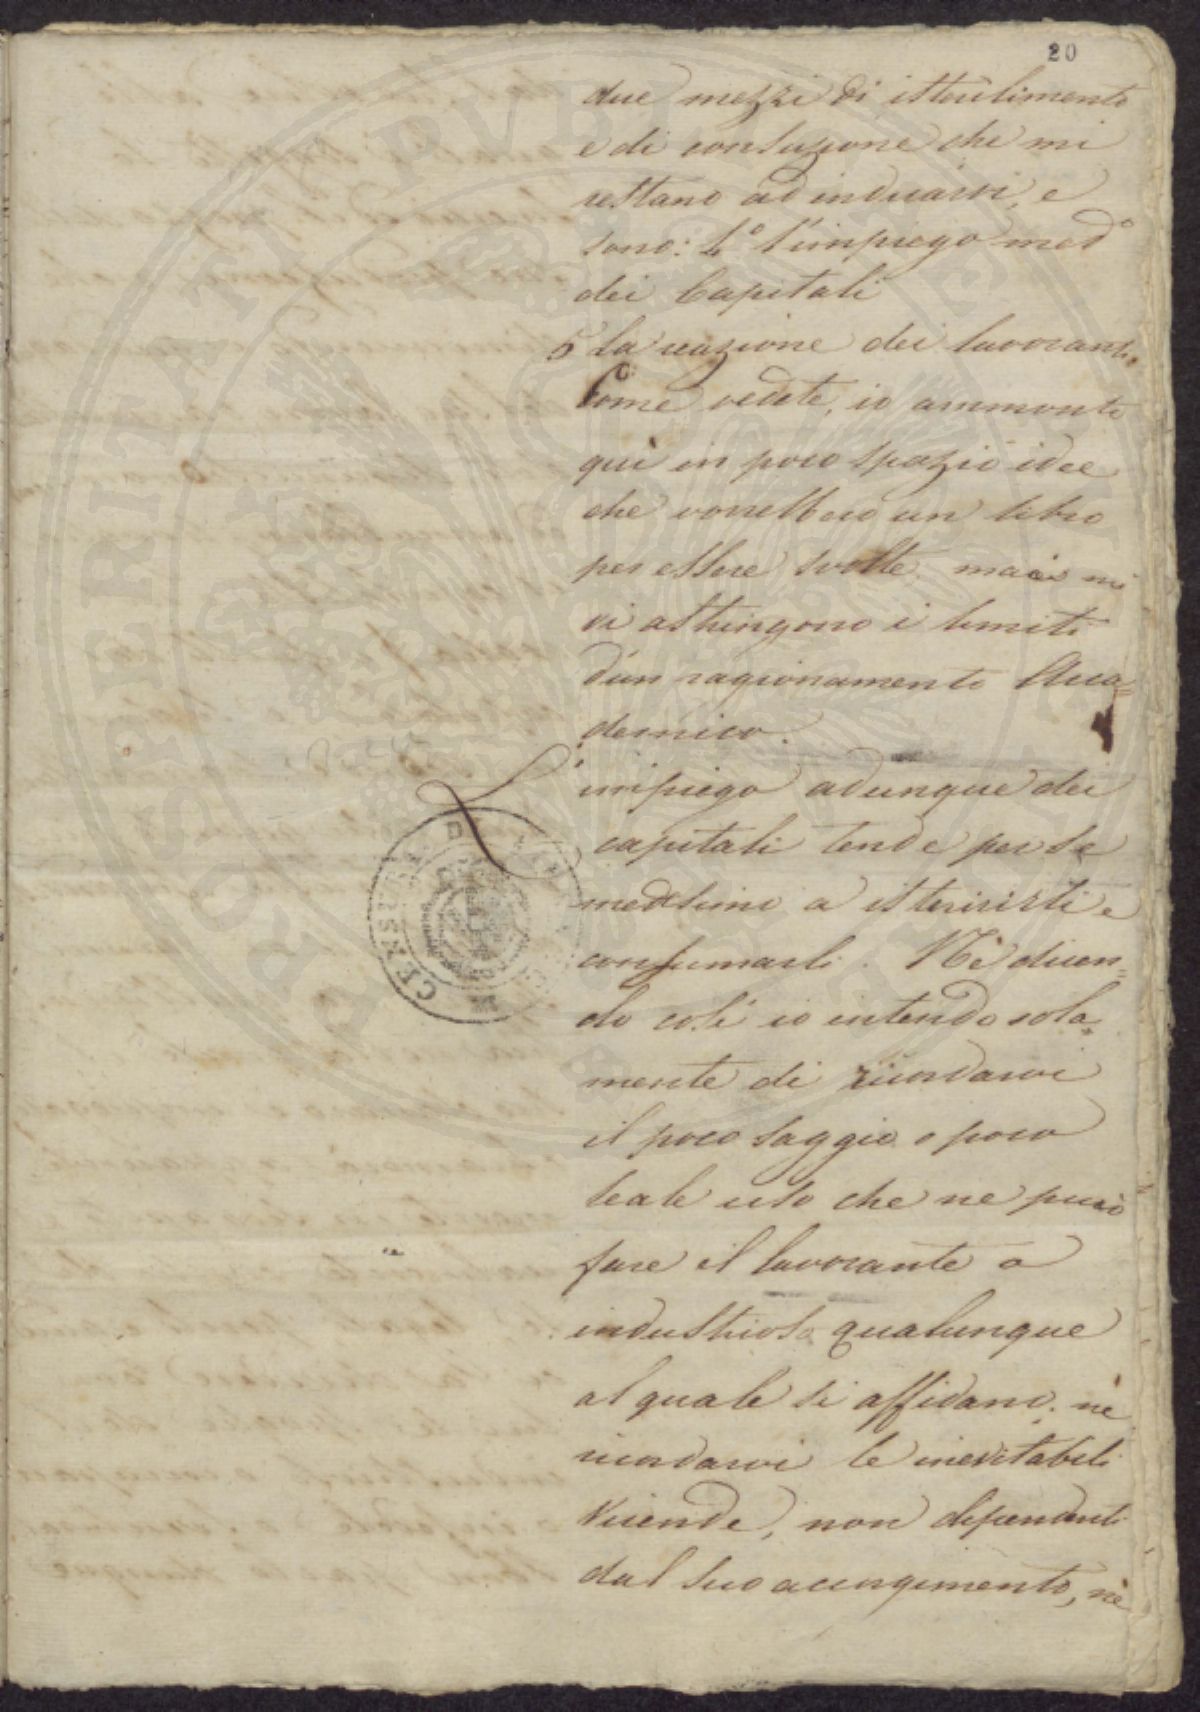 20
due mezzi di isterilimento
e di consuzione che mi
restano ad indicarvi, e
sono: 4.º l'impiego med.º
dei Capitali
5 La reazione dei lavoranti.
Come vedete, io ammonto
quì in poco spazio idee
che vorrebbero un libro
per essere svolte, ma a ciò mi
vi astringono i limiti
d'un ragionamento Acca=
demico.
L'impiego adunque dei
capitali tende per se
medesimo a isterirli e
consumarli. Nè dicen=
do così io intendo sola=
mente di ricordarvi
il poco saggio o poco
leale uso che ne può
fare il lavorante o
industrioso qualunque
al quale si affidano; nè
ricordarvi le inevitabili
vicende, non dipendenti
dal suo accorgimento, nè
CENSURA
PROSPERITATI PVBLICAE